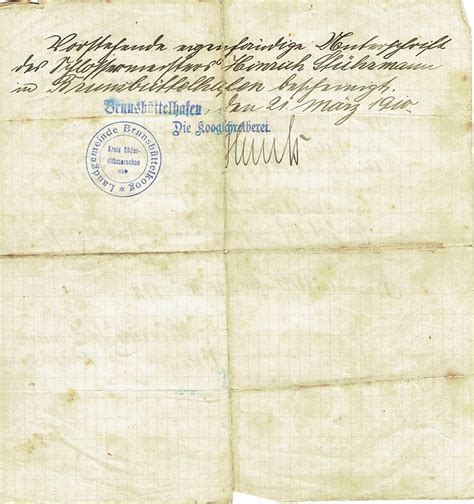 Vorstehende eigenhändige Unterschrift
des Schlossermeisters Heinrich
in Brunsbüttelhafen bescheinigt.
Brunsbüttelhafen, den 21. März 1910.
Die Koogschreiberei.
Landgemeinde Brunsbüttelkoog
Kreis Süder-
dithmarschen